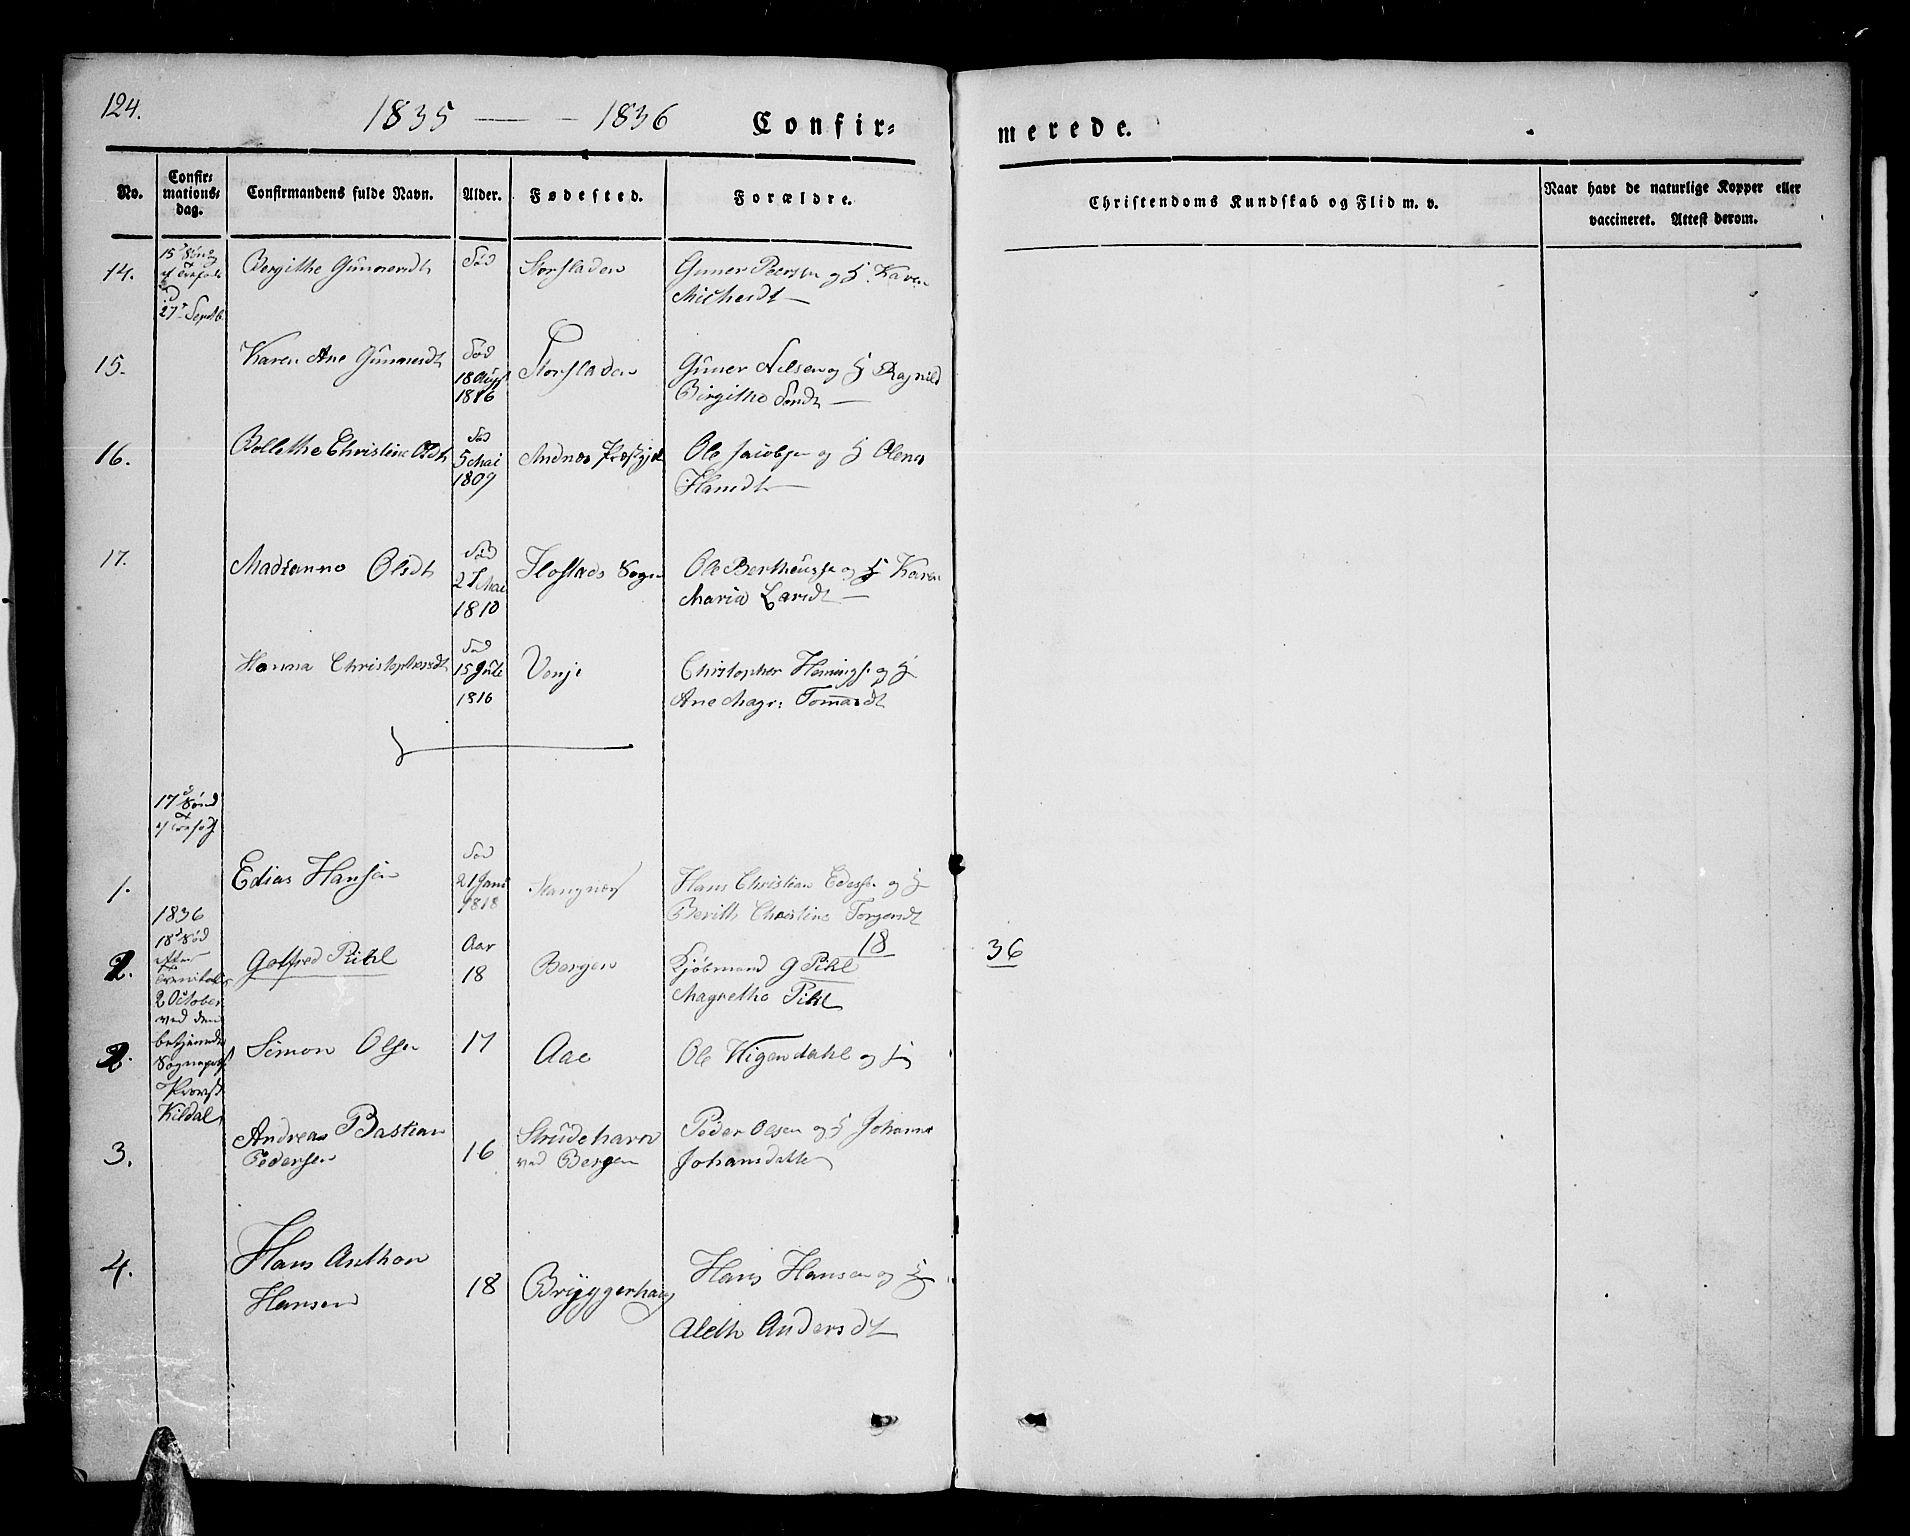 124.
1835 — - 1836 Confir=
merede.
No. Confir= mations= dag. Confirmandens fulde Navn. Alder. Fødested. Forældre.
Christendoms Kundskab og Flid m. v. Naar havt de naturlige Kopper eller
vaccineret. Attest derom.
14. Bergithe Gunnersdt Fød Storsladen Gunner Peersen og H. Karen
27 Septb
15. Karen Ane Gunnersdt Fød Storsladen Gunner Nilsen og H Ragnild
18 Aug
1816 Birgithe
16. Bollethe Christine Olsdt Fød Andnæs Ole Jacobsen og H Olena
5 Mai
1809 Hansdt —
17. Fød Sogn Ole og H Karen
Olsdt Mai
1810 Maria Larsdt —
Hanna Christophersdt Fød Venje Christopher og H
15 Juli
1816 Ane Magr: Tomasdt
17 Sønd
1. Edias Hansen Fød Stangnæs Hans Christian og H
21 Jan
1818 Berith Christine
1836 18 36
18 Sød
efter
2. Gotfred Pihl Aar Bergen Kjøbmand G Pihl
18
2 October Magrethe Pihl
ved den
2. Simon Olsen 17 Aae Ole og H
Provst
Kildal
3. Andreas Bastian 16 Strudehavn Peder Olsen og H Johanna
Pedersen ved Bergen Johansdatter
4. Hans Anthon Hans Hansen og H
Hansen 18 Bryggerhaug
Aleth Andersdt